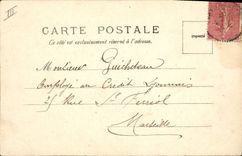 III
CARTE POSTALE
Ce côté est exclusivement réservé à l'adresse.
Monsieur Guichetseau
Employé au Crédit Lyonnais
25 Rue St Ferréol
Marseille